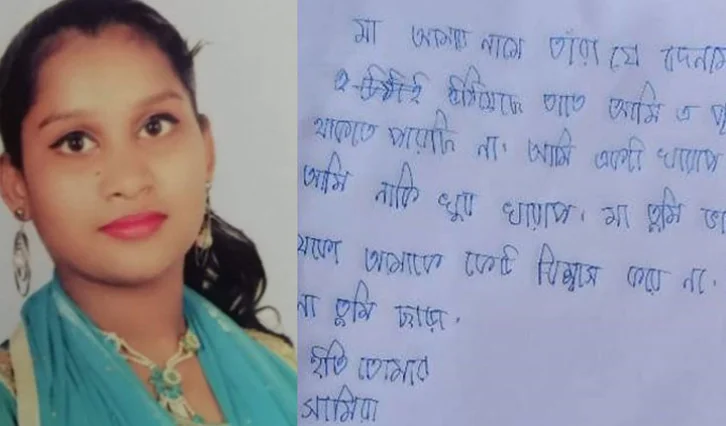 মা আমার নামে তাঁরা যে বদনাম
ছড়িয়েছে তাতে আমি এ
থাকতে পারছি না। আমি একটা খারাপ
আমি নাকি খুব খারাপ। মা তুমি
আমাকে কেউ বিশ্বাস করে না।
তুমি ছাড়া।
ইতি তোমার
সামিরা